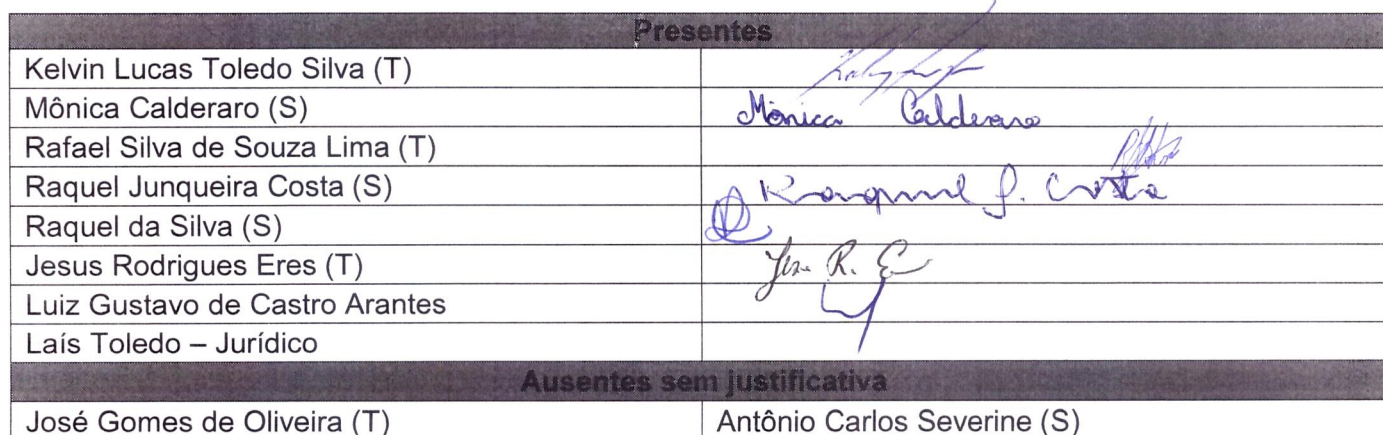 Presentes
Kelvin Lucas Toledo Silva (T)
Mônica Calderaro (S) Mônica Calderaro
Rafael Silva de Souza Lima (T)
Raquel Junqueira Costa (S) Raquel J. Costa
Raquel da Silva (S)
Jesus Rodrigues Eres (T) R.
Luiz Gustavo de Castro Arantes
Laís Toledo – Jurídico
Ausentes sem justificativa
José Gomes de Oliveira (T) Antônio Carlos Severine (S)